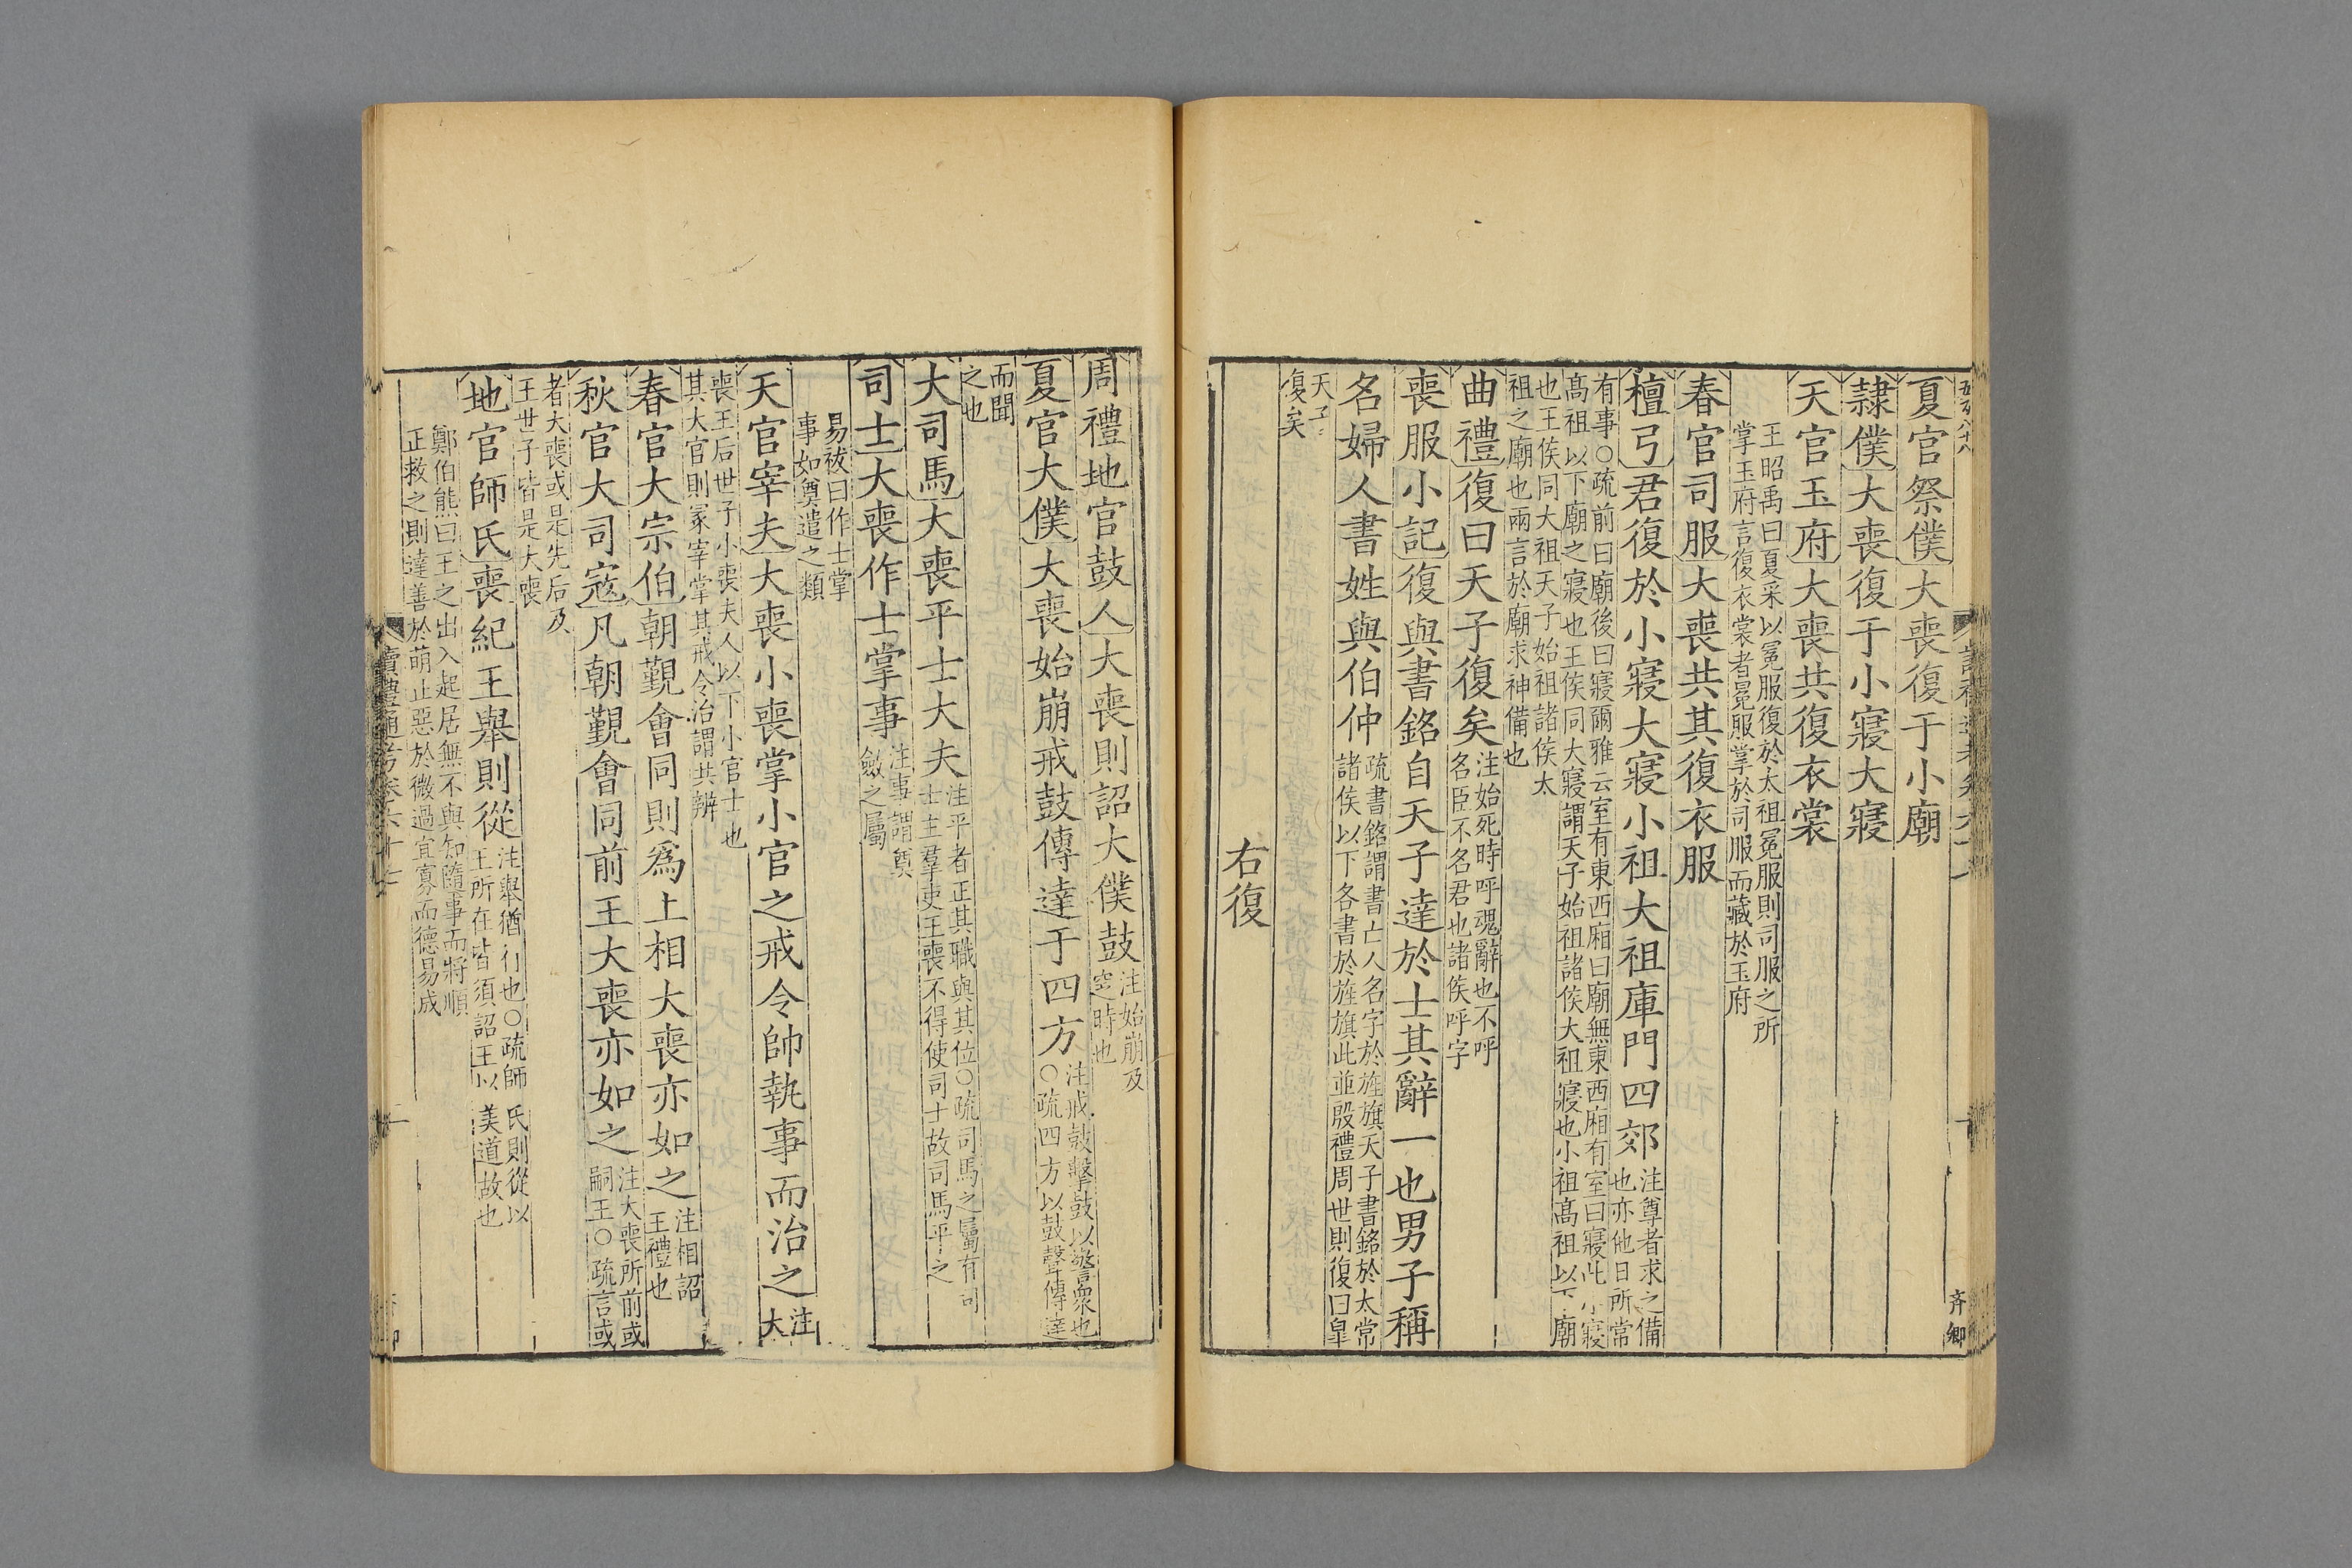 夏官祭僕大喪復于小廟
隸僕大喪復于小寢大寢
天官玉府大喪共復衣裳
王昭禹曰夏采以冕服復於太祖冕服則司服之所
掌玉府言復衣裳者冕服掌於司服而藏於玉府
春官司服大喪共其復衣服
檀弓君復於小寢大寢小祖大祖庫門四郊
注尊者求之備
也亦他日所常
有事○疏前曰廟後曰寢爾雅云室有東西廂曰廟無東西廂有室曰寢此小寢
髙祖以下廟之寢也王侯同大寢謂天子始祖諸侯大祖寢也小祖髙祖以下廟
也王侯同大祖天子始祖諸侯太
祖之廟也兩言於廟求神備也
曲禮復曰天子復矣
注始死時呼魂辭也不呼
名臣不名君也諸侯呼字
喪服小記復與書銘自天子達於士其辭一也男子稱
名婦人書姓與伯仲
疏書銘謂書亡人名字於旌旗天子書銘於太常
諸侯以下各書於旌旗此並殷禮周世則復曰皐
天子
復矣
右復
周禮地官鼓人大喪則詔大僕鼓
注始崩及
窆時也
夏官大僕大喪始崩戒鼓傳達于四方
注戒鼓擊鼓以警衆也
○疏四方以鼓聲傳達
而聞
之也
大司馬大喪平士大夫
注平者正其職與其位○疏司馬之屬有司
士主羣吏王喪不得使司士故司馬平之
司士大喪作士掌事
注事謂奠
斂之屬
易祓曰作士掌
事如奠遣之類
天官宰夫大喪小喪掌小官之戒令帥執事而治之
注
大
喪王后世子小喪夫人以下小官士也
其大官則冢宰掌其戒令治謂共辨
春官大宗伯朝覲會同則爲上相大喪亦如之
注相詔
王禮也
秋官大司寇凡朝覲會同前王大喪亦如之
注大喪所前或
嗣王○疏言或
者大喪或是先后及
王世子皆是大喪
地官師氏喪紀王舉則從
注舉猶行也○疏師氏則從以
王所在皆須詔王以美道故也
鄭伯熊曰王之出入起居無不與知隨事而將順
正救之則達善於萌止惡於微過宜寡而德易成
讀禮通考卷六十七
齐卿